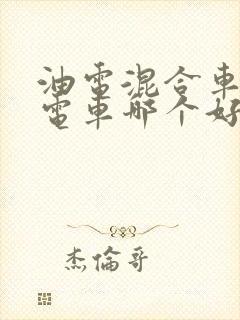 油電混合車
電車哪个好
杰倫哥